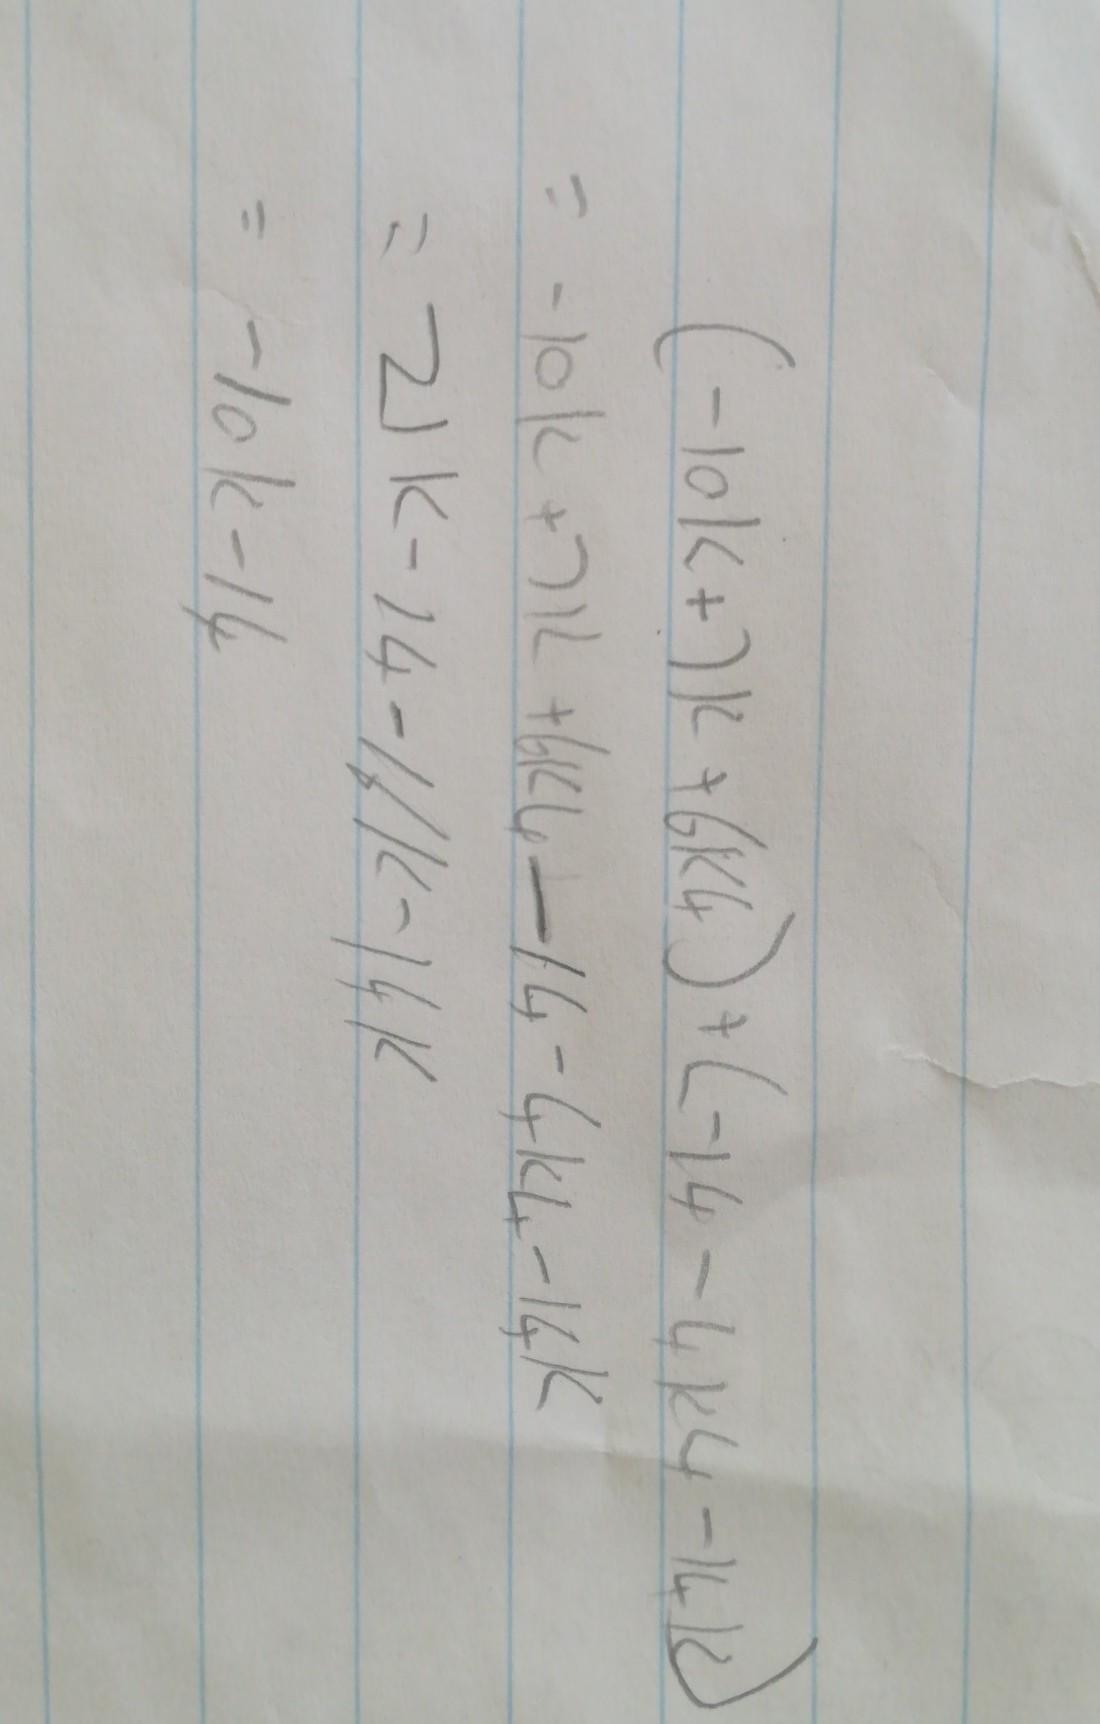 (-10k+7k+6k4)+(-14-4k4-14k)
= -10k+7k+6k4-14-4k4-14k
= 21k-14-11k-14k
= -10k-14